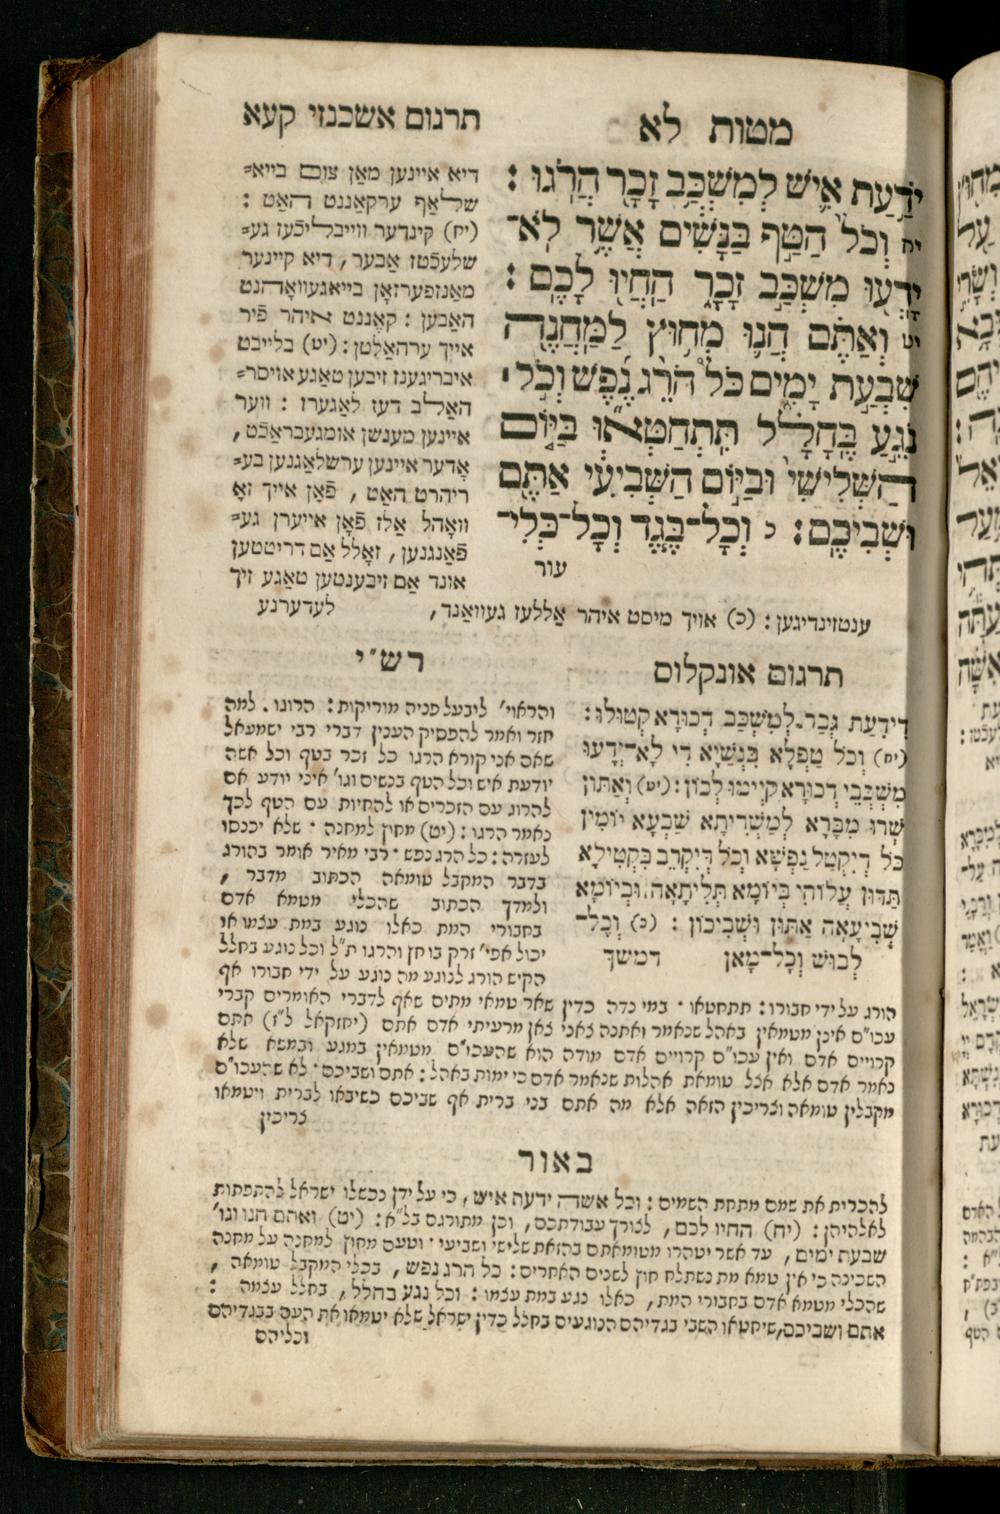 מטות לא
תרגום אשכנזי קעא
יֹדַעַת אִישׁ לְמִשְׁכַּב זָכָר הֲרֹגוּ :
יח וְכֹל הַטַּף בַּנָּשִׁים אֲשֶׁר לֹא־
יָדְעוּ מִשְׁכַּב זָכָר הַחֲיוּ לָכֶם :
יט וְאַתֶּם חֲנוּ מִחוּץ לַמַּחֲנֶה
שִׁבְעַת יָמִים כֹּל הֹרֵג נֶפֶשׁ וְכֹל ׀
נֹגֵעַ בֶּחָלָל תִּתְחַטְּאוּ בַּיּוֹם
הַשְּׁלִישִׁי וּבַיּוֹם הַשְּׁבִיעִי אַתֶּם
וּשְׁבִיכֶם : כ וְכָל־בֶּגֶד וְכָל־כְּלִי־
עור
דיא איינען מאַן צום בייא=
שלאַף ערקאַננט האַט :
(יח) קינדער ווייבליכֿעז גע=
שלעכֿטז אַבער, דיא קיינער
מאַנזפערזאָן בייאגעוואָהנט
האַבען : קאָננט איהר פֿיר
אייך ערהאַלטן : (יט) בלייבט
איבריגענז זיבען טאַגע אויסר=
האַלב דעז לאַגערז : ווער
איינען מענשן אומגעבראַכֿט,
אָדער איינען ערשלאַגנען בע=
ריהרט האַט, פֿאָן אייך זאָ
וואָהל אַלז פֿאָן אייערן גע=
פֿאַנגנען, זאָלל אַם דריטטען
אונד אַם זיבענטען טאַגע זיך
ענטזינדיגען : (כ) אויך מיסט איהר אַללעז געוואַנד,
לעדערנע
תרגום אונקלוס
דִידַעַת גְּבַר לְמִשְׁכַּב דְכוּרָא קְטוּלוּ :
(יח) וְכֹל טַפְלָא בִּנְשַׁיָא דִי לָא־יְדָעוּ
מִשְׁכְּבֵי דְכוּרָא קַיִימוּ לְכוֹן : (יט) וְאַתּוּן
שְׁרוּ מִבָּרָא לְמַשְׁרִיתָא שַׁבְעָא יוֹמִין
כֹּל דְיִקְטַל נַפְשָׁא וְכֹל דְיִקְרַב בִּקְטִילָא
תַּדּוּן עֲלוֹהִי בְּיוֹמָא תְּלִיתָאָה וּבְיוֹמָא
שְׁבִיעָאָה אַתּוּן וּשְׁבִיכוֹן : (כ) וְכָל־
לְבוּשׁ וְכָל־מָאן
דמשך
רש״י
והראוי׳ ליבעל פניה מוריקות : הרוגו. למה
חזר ואמר להפסיק הענין דברי רבי ישמעאל
שאם אני קורא הרגו כל זכר בטף וכל אשה
יודעת איש וכל הטף בנשים וגו׳ איני יודע אם
להרוג עם הזכרים או להחיות עם הטף לכך
נאמר הרגו : (יט) מחוץ למחנה ׳ שלא יכנסו
לעזרה : כל הרג נפש ׳ רבי מאיר אומר בהורג
בדבר המקבל טומאה הכתוב מדבר,
ולמדך הכתוב שהכלי מטמא אדם
בחבורי המת כאלו נוגע במת עצמו או
יכול אפי׳ זרק בו חץ והרגו ת״ל וכל נוגע בחלל
הקיש הורג לנוגע מה נוגע על ידי חבורו אף
הורג על ידי חבורו : תתחטאו ׳ במי נדה כדין שאר טמאי מתים שאף לדברי האומרים קברי
עכו״ם אינן מטמאין באהל שנאמר ואתנה צאני צאן מרעיתי אדם אתם (יחזקאל ל״ז) אתם
קרויים אדם ואין עכו״ם קרויים אדם מודה הוא שהעכו״ם מטמאין במגע ובמשא שלא
נאמר אדם אלא אצל טומאת אהלות שנאמר אדם כי ימות באהל : אתם ושביכם ׳ לא שהעכו״ם
מקבלין טומאה וצריכין הזאה אלא מה אתם בני ברית אף שביכם כשיבאו לברית ויטמאו
צריכין
באור
להכרית את שמם מתחת השמים : וכל אשה ידעת איש, כי על ידן נכשלו ישראל להתפתות
לאלהיהן : (יח) החיו לכם, לצורך עבודתכם, וכן מתורגם בל״א : (יט) ואתם חנו וגו׳
שבעת ימים, עד אשר יטהרו מטומאתם בהזאת שלישי ושביעי ׳ וטעם מחוץ למחנה על מחנה
השכינה כי אין טמא מת נשתלח חוץ לשנים האחרים : כל הרג נפש, בכלי המקבל טומאה,
שהכלי מטמא אדם בחבורי המת, כאלו נגע במת עצמו : וכל נגע בחלל, בחלל עצמה :
אתם ושביכם, שיחטאו השבי בגדיהם הנוגעים בחלל כדין ישראל שלא יטמאו את העם בבגדיהם
וכליהם